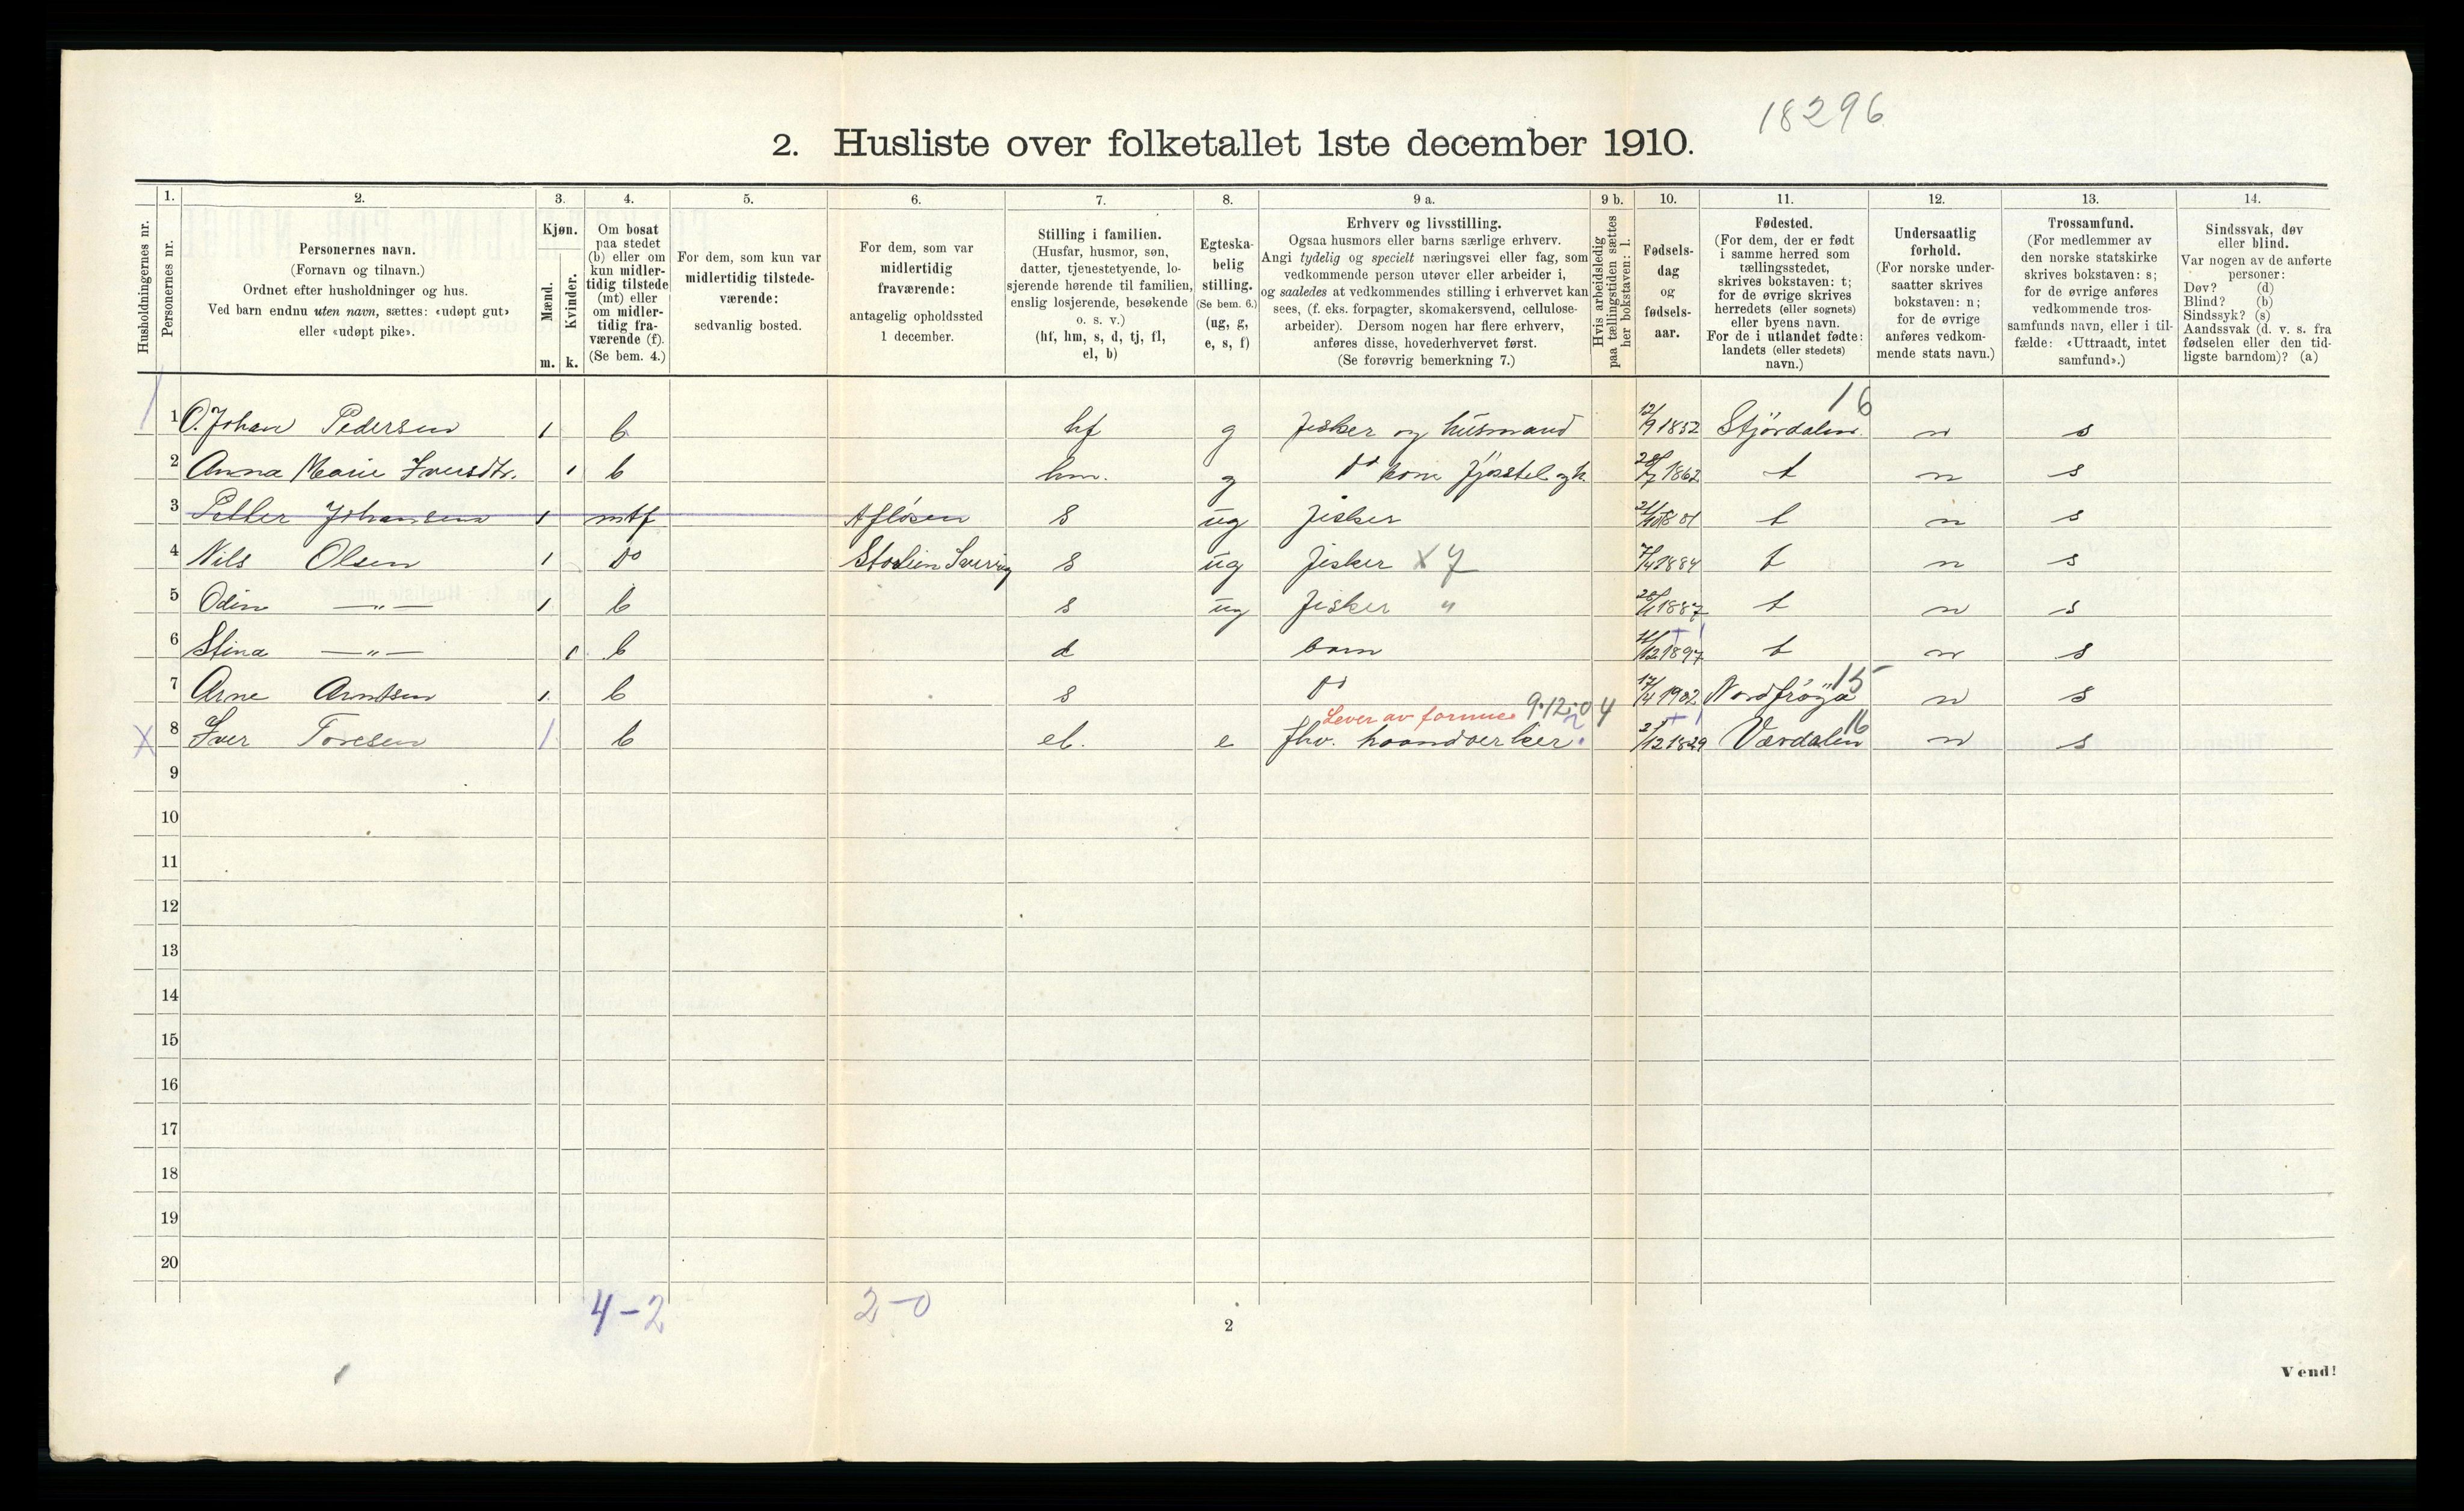 18296
2. Husliste over folketallet 1ste december 1910.
Husholdningernes nr.
1.
Personernes nr.
2.
Personernes navn.
(Fornavn og tilnavn.)
Ordnet efter husholdninger og hus.
Ved barn endnu uten navn, sættes: «udøpt gut»
eller «udøpt pike».
3.
Kjøn.
Mænd.
Kvinder.
m. k.
4.
Om bosat
paa stedet
(b) eller om
kun midler-
tidig tilstede
(mt) eller
om midler-
tidig fra-
værende (f).
(Se bem. 4.)
5.
For dem, som kun var
midlertidig tilstede-
værende:
sedvanlig bosted.
6.
For dem, som var
midlertidig
fraværende:
antagelig opholdssted
1 december.
7.
Stilling i familien.
(Husfar, husmor, søn,
datter, tjenestetyende, lo-
sjerende hørende til familien,
enslig losjerende, besøkende
o. s. v.)
(hf, hm, s, d, tj, fl,
el, b)
8.
Egteska-
belig
stilling.
(Se bem. 6.)
(ug, g,
e, s, f)
9 a.
Erhverv og livsstilling.
Ogsaa husmors eller barns særlige erhverv.
Angi tydelig og specielt næringsvei eller fag, som
vedkommende person utøver eller arbeider i,
og saaledes at vedkommendes stilling i erhvervet kan
sees, (f. eks. forpagter, skomakersvend, cellulose-
arbeider). Dersom nogen har flere erhverv,
anføres disse, hovederhvervet først.
(Se forøvrig bemerkning 7.)
9 b.
Hvis arbeidsledig
paa tællingstiden sættes
her bokstaven: l.
10.
Fødsels-
dag
og
fødsels-
aar.
11.
Fødested.
(For dem, der er født
i samme herred som
tællingsstedet,
skrives bokstaven: t;
for de øvrige skrives
herredets (eller sognets)
eller byens navn.
For de i utlandet fødte:
landets (eller stedets)
navn.)
12.
Undersaatlig
forhold.
(For norske under-
saatter skrives
bokstaven: n;
for de øvrige
anføres vedkom-
mende stats navn.)
13.
Trossamfund.
(For medlemmer av
den norske statskirke
skrives bokstaven: s;
for de øvrige anføres
vedkommende tros-
samfunds navn, eller i til-
fælde: «Uttraadt, intet
samfund».)
14.
Sindssvak, døv
eller blind.
Var nogen av de anførte
personer:
Døv? (d)
Blind? (b)
Sindssyk? (s)
Aandssvak (d. v. s. fra
fødselen eller den tid-
ligste barndom)? (a)
16
1 O. Johan Pedersen 1 b hf g fisker og husmand 12/9 1852 Stjørdalen n s
2 Anna Marie Iversdtr. 1 b hm. g do kone fjøsstel 28/7 1862 t n s
3 Petter Johansen 1 mtf Afløsen s ug fisker 1881 t n s
4 Nils Olsen 1 do Storlien Sverrig s ug fisker X 7 7/4 1884 t n s
5 Odin —"— 1 b s ug fisker " 1887 t n s
6 Stina —"— 1 b d barn 1897 t n s
7 Arne Arntsen 1 b s do 17/4 1902 Nordfrøya 15 n s
Lever av formue 9.12.04
X 8 Iver Toresen 1 b el. e fhv. haandverker. 1829 Værdalen 16 n s
9
10
11
12
13
14
15
16
17
18
19
20
4-2 2-0
2
Vend!